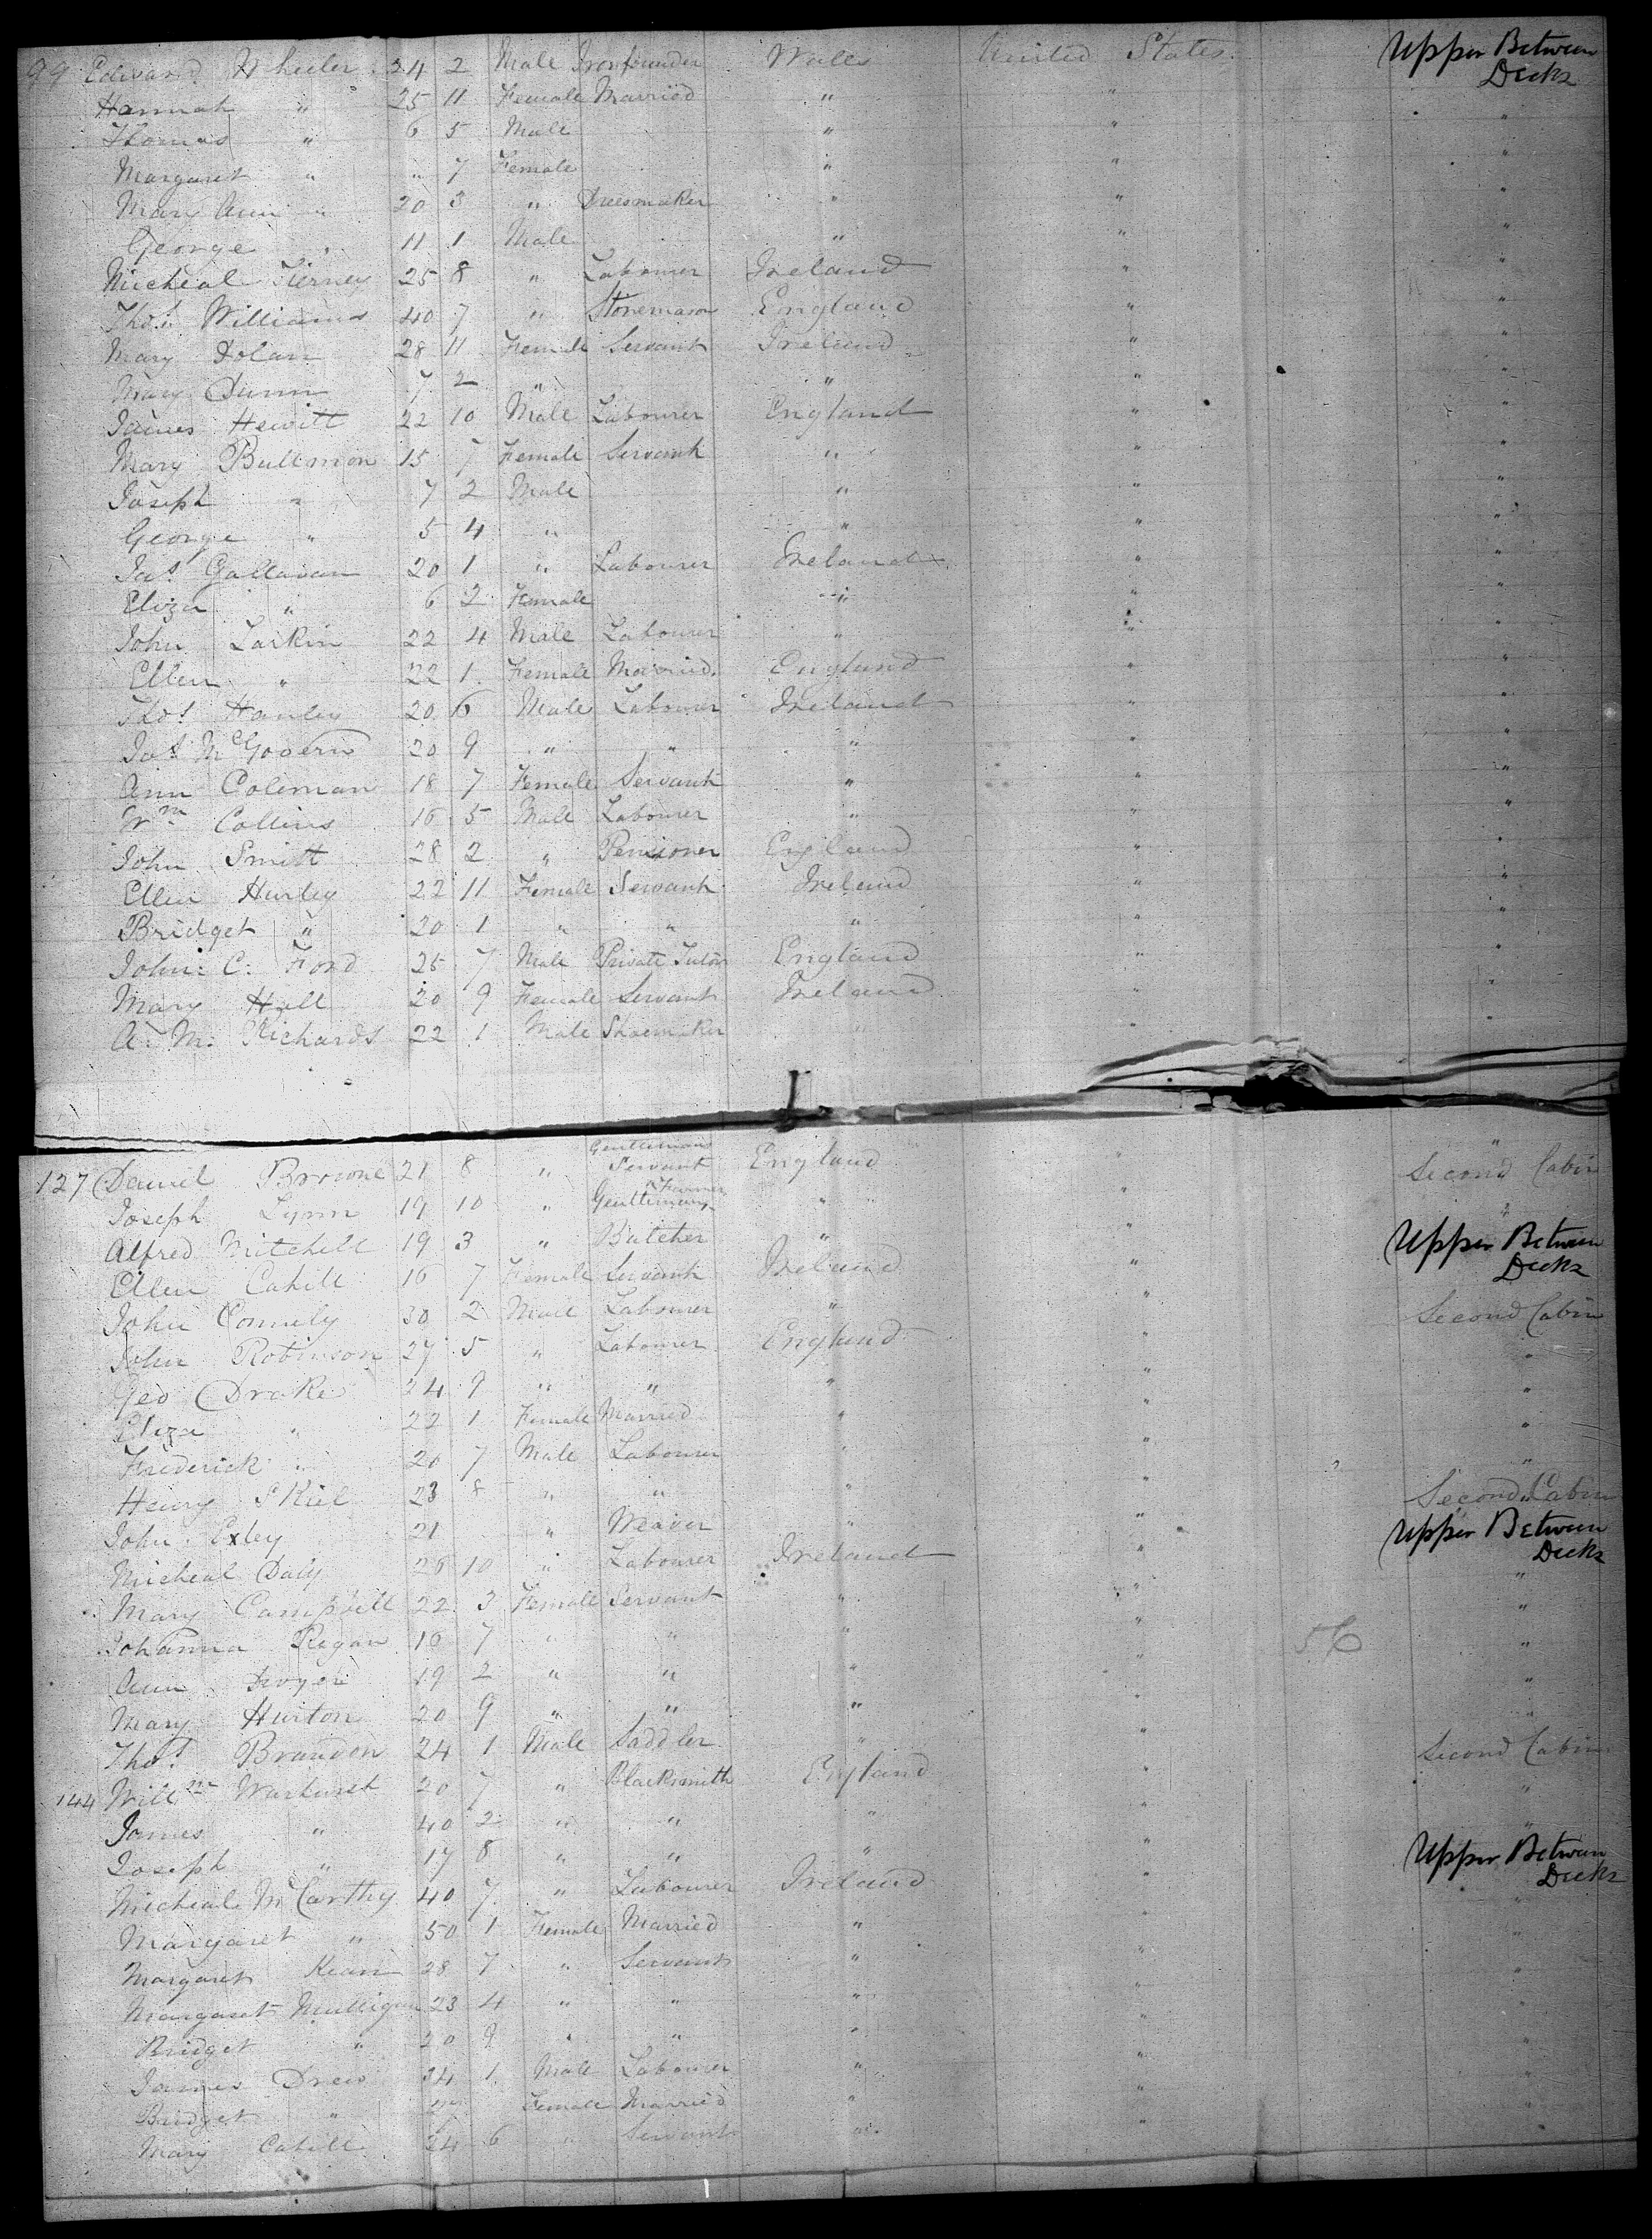 99 Edward Wheeler 34 2 Male Ironfounder Wales United States Upper Between Decks
Hannah " 25 11 Female Married " " "
Thomas " 6 5 Male " " "
Margaret " " 7 Female " " "
Mary Ann " 20 3 " Dressmaker " " "
George " 11 1 Male " " "
Micheal Tierney 25 8 " Labourer Ireland " "
Thos. Williams 40 7 " Stonemason England " "
Mary Dolan 28 11 Female Servant Ireland " "
Mary Dunn 7 2 " " " "
James Hewitt 22 10 Male Labourer England " "
Mary Bullmon 15 7 Female Servant " " "
Joseph " 7 2 Male " " "
George " 5 4 " " " "
Jas. Gallavan 20 1 " Labourer Ireland " "
Eliza " 6 2 Female " " "
John Larkin 22 4 Male Labourer " " "
Ellen " 22 1 Female Married England " "
Thos. Hanley 20 6 Male Labourer Ireland " "
Jas. McGovern 20 9 " " " " "
Ann Coleman 18 7 Female Servant " " "
Wm Collins 16 5 Male Labourer " " "
John Smith 28 2 " Pensioner England " "
Ellen Hurley 22 11 Female Servant Ireland " "
Bridget " 20 1 " " " " "
John: C: Ford 25 7 Male Private Tutor England " "
Mary Hall 20 9 Female Servant Ireland " "
A: M: Richards 22 1 Male Shoemaker " " "
127 Daniel Browne 21 8 " Gentlemans Servant England " " Second Cabin
Joseph Lynn 19 10 " Gentlemans Farmer " " "
Alfred Mitchell 19 3 " Butcher " " Upper Between Decks
Ellen Cahill 16 7 Female Servant Ireland "
John Connely 30 2 Male Labourer " " Second Cabin
John Robinson 27 5 " Labourer England " "
Geo Drake 24 9 " " " " "
Eliza " 22 1 Female Married " " "
Frederick " 20 7 Male Labourer " " "
Henry Skiel 23 8 " " " " Second Cabin
John Exley 21 " Weaver " " Upper Between Decks
Micheal Daly 26 10 " Labourer Ireland " "
Mary Campbell 22 3 Female Servant " " "
Johanna Regan 16 7 " " " " "
Ann Dwyer 19 2 " " " " "
Mary Hurton 20 9 " " " " "
Thos. Brandon 24 1 Male Saddler " " Second Cabin
144 Willm Warhurst 20 7 " Blacksmith England " "
James " 40 2 " " " " "
Joseph " 17 8 " " " " Upper Between Decks
Micheal McCarthy 40 7 " Labourer Ireland " "
Margaret " 50 1 Female Married " " "
Margaret Kean 28 7 " Servant " " "
Margaret Mulligan 23 4 " " " " "
Bridget " 20 9 " " " " "
James Drew 34 1 Male Labourer " " "
Bridget " Female Married " " "
Mary Cahill 24 6 " Servant " " "